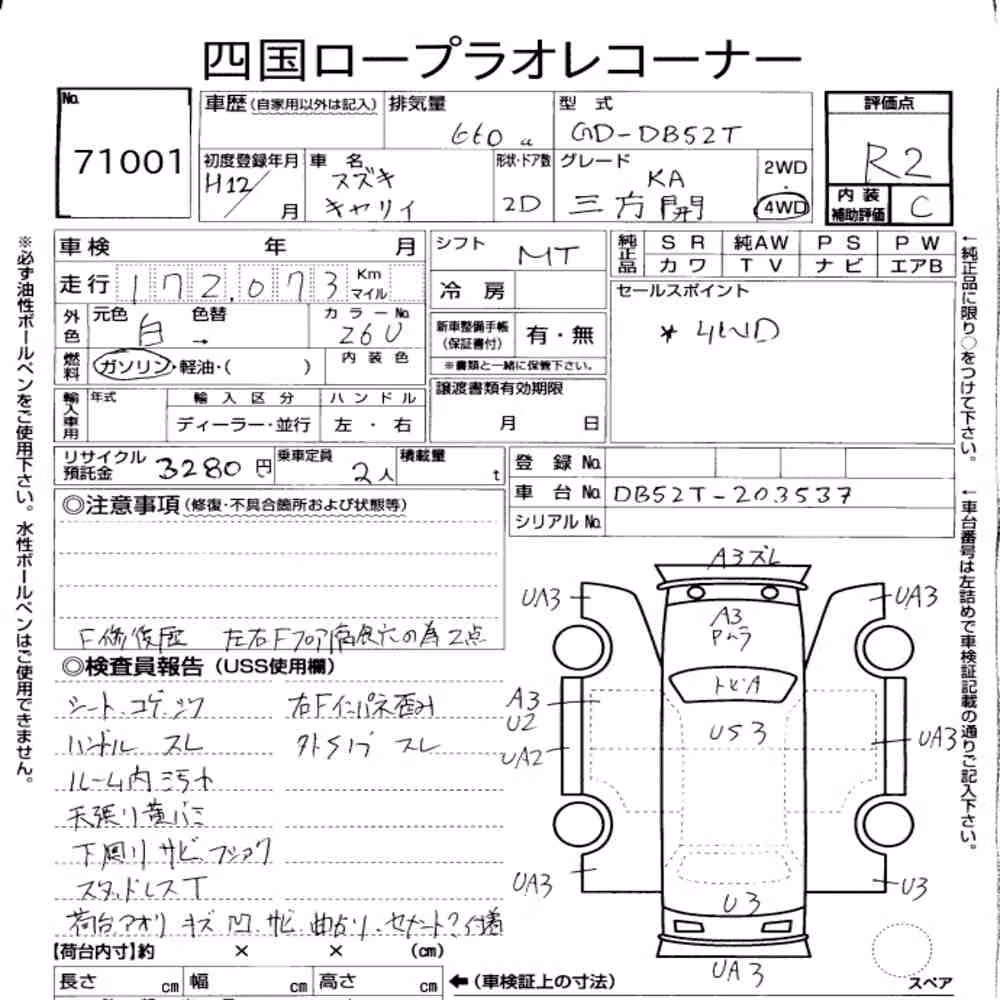 四国ロープラオレコーナー
No. 71001
車歴(自家用以外は記入)
排気量 660 cc
型 式 GD-DB52T
評価点 R2
内装補助評価 C
初度登録年月 H12/ 月
車 名 スズキ キャリイ
形状・ドア数 2D
グレード KA 三方開
2WD ・ 4WD
車検 年 月
シフト MT
純正品 SR 純AW PS PW
カワ TV ナビ エアB
走行 172,073 Km マイル
冷 房
セールスポイント
* 4WD
外色 元色 白 色替 → カラーNo. 26U
新車整備手帳(保証書付) 有・無
※書類と一緒に保管下さい。
燃料 ガソリン・軽油・( ) 内装色
譲渡書類有効期限
月 日
輸入車用 年式 輸入区分 ハンドル
ディーラー・並行 左・右
リサイクル預託金 3280 円
乗車定員 2人
積載量 t
登 録 No.
車 台 No. DB52T-203537
シリアル No.
◎注意事項(修復・不具合箇所および状態等)
F修復歴 左右Fフロア腐食穴の為2点
◎検査員報告(USS使用欄)
シート、コゲ、シワ 右Fインパネ歪み
ハンドル スレ
ルーム内 汚れ
天張り黄バミ
下回り サビ、フショク
スタッドレスT
荷台アオリ キズ 凹 サビ 曲がり、
【荷台内寸】約 × × (cm)
長さ cm 幅 cm 高さ cm
←(車検証上の寸法)
A3ズレ
UA3
UA3
A3
Pムラ
トビA
A3
U2
US3
UA2
UA3
UA3
U3
U3
UA3
スペア
※必ず油性ボールペンをご使用下さい。水性ボールペンはご使用できません。
←純正品に限り○をつけて下さい。
←車台番号は左詰めで車検証記載の通りご記入下さい。